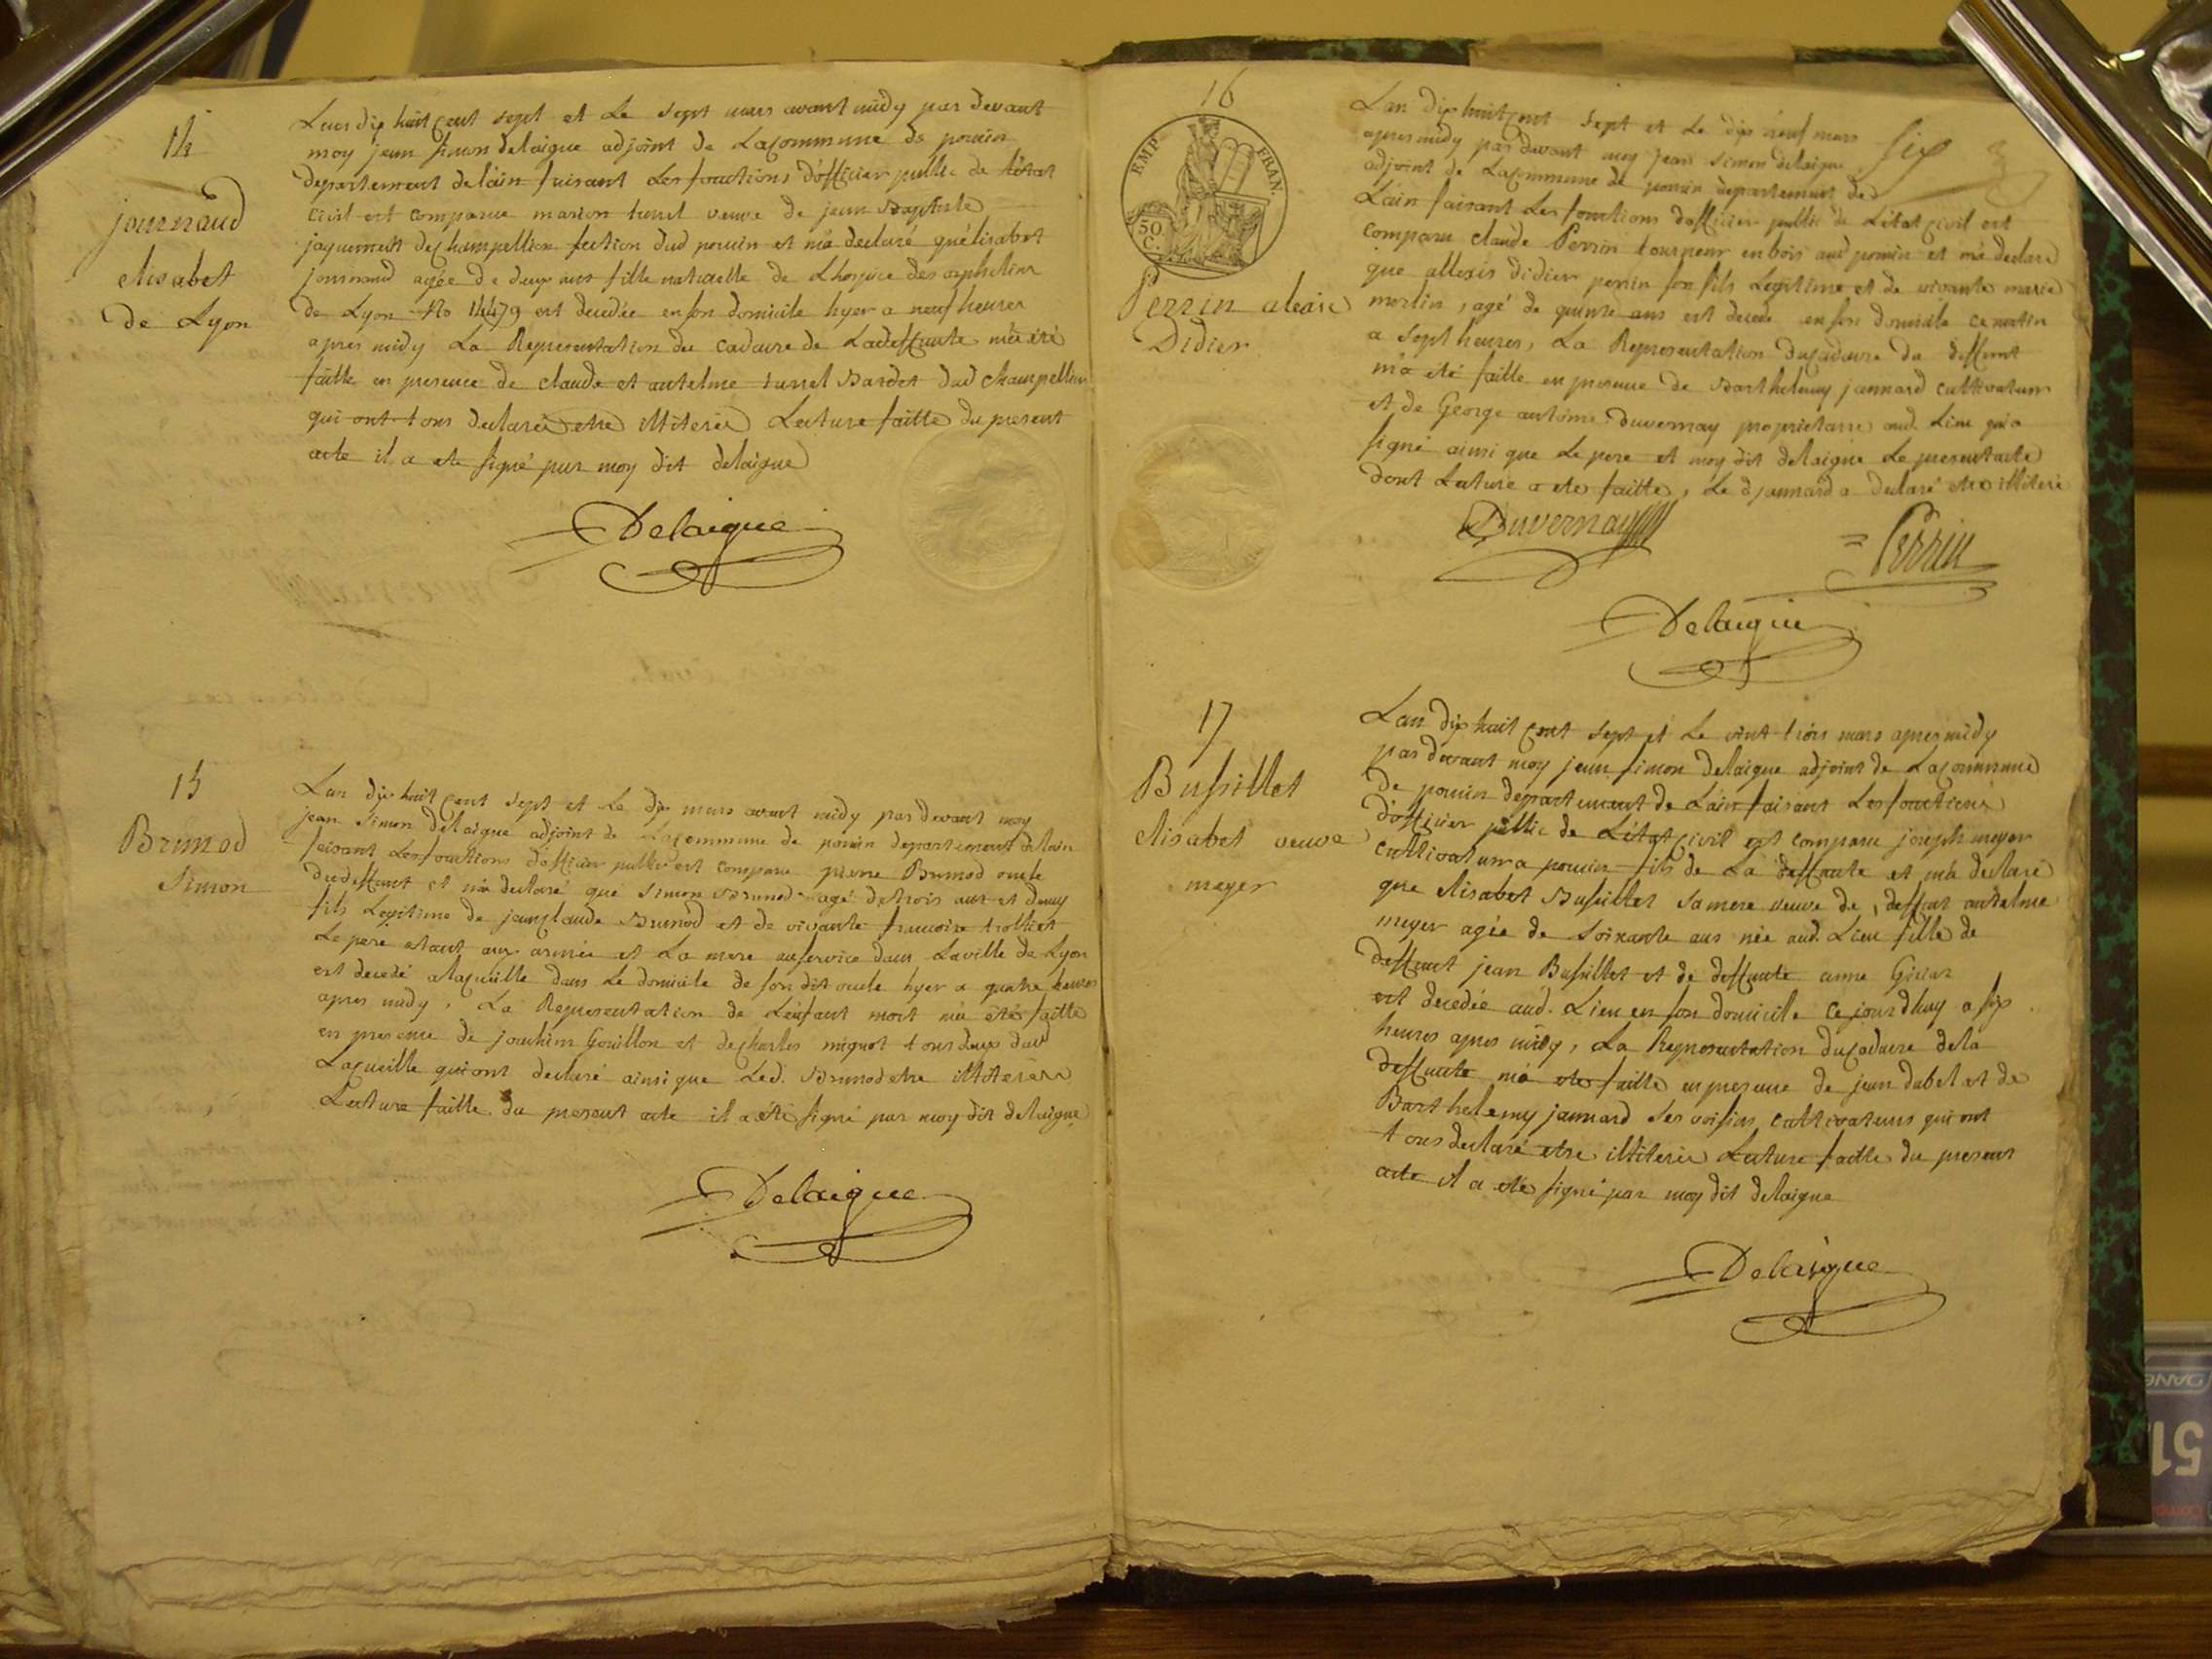 14
journaud
elisabet
de Lyon
Lan dix huit cent sept et Le sept mars avant midy par devant
moy jean simon delaigue adjoint de La commune de poncin
departement de lain faisant Les fonctions d'officier public de l'état
civil est comparue marion turrel veuve de jean Baptiste
jaquemet de champellion section dud poncin et m'a declaré qu'elisabet
journaud agée de deux ans fille naturelle de Lhospice des orphelins
de Lyon No 14479 est decedée en son domicile hyer a neuf heures
apres midy La Representation du cadavre de Ladeffunte m'a été
faitte en presence de claude et antelme turrel Bardet dud champellion
qui ont tous declaré etre illiterés Lecture faitte du present
acte il a ete signé par moy dit delaigue
Delaigue
15
Brunod
Simon
Lan dix huit cent sept et Le dix mars avant midy par devant moy
jean Simon delaigue adjoint de La commune de poncin departement de lain
faisant Les fonctions d'officier public est comparu pierre Brunod oncle
du deffunt et m'a declaré que Simon Brunod agé de trois ans et demy
fils Legitime de jean claude Brunod et de vivante francoise trolliet
Le pere etant aux armées et La mere au service dans La ville de Lyon
est decedé a lacueille dans Le domicile de son dit oncle hyer a quatre heures
apres midy, La Representation de L'enfant mort m'a été faitte
en presence de joachim Gouillon et de charles miguot tous deux dud
Lacueille qui ont declaré ainsi que Led. Brunod etre illiterés
Lecture faitte du present acte il a été signé par moy dit delaigue
Delaigue
16
EMP. FRAN.
50 C.
Perrin alexis
Didier
six
Lan dix huit cent sept et Le dix neuf mars
apres midy par devant moy jean simon delaigue
adjoint de La commune de poncin departement de
Lain faisant Les fonctions d'officier public de Letat civil est
comparu claude Perrin tourneur en bois aud poncin et m'a declaré
que allexis didier perrin son fils Legitime et de vivante marie
merlin, agé de quinze ans est decedé en son domicile ce matin
a sept heures, La Representation du cadavre du deffunt
m'a eté faitte en presence de Barthelemy jannard cultivateur
et de George antoine Duvernay proprietaire aud. Lieu qui a
signé ainsi que Le pere et moy dit delaigue Le present acte
dont Lecture a ete faitte, Le d jannard a declaré etre illiteré
Duvernay
Perrin
Delaigue
17
Bussillet
elisabet veuve
meyer
Lan dix huit cent sept et Le vint trois mars apres midy
par devant moy jean simon delaigue adjoint de La commune
de poncin departement de Lain faisant Les fonctions
d'officier public de L'état civil est comparu joseph meyer
cultivateur a poncin fils de La deffunte et m'a declaré
que elisabet Bussillet sa mere veuve de, deffunt antelme
meyer agée de soixante ans née aud. Lieu fille de
deffunt jean Bussillet et de deffunte anne
est decedée aud. Lieu en son domicile ce jourdhuy a six
heures apres midy, La Representation du cadavre de la
deffunte m'a ete faitte en presence de jean dubel et de
Barthelemy jannard ses voisins cultivateurs qui ont
tous declaré etre illiterés Lecture faitte du present
acte il a été signé par moy dit delaigue
Delaigue